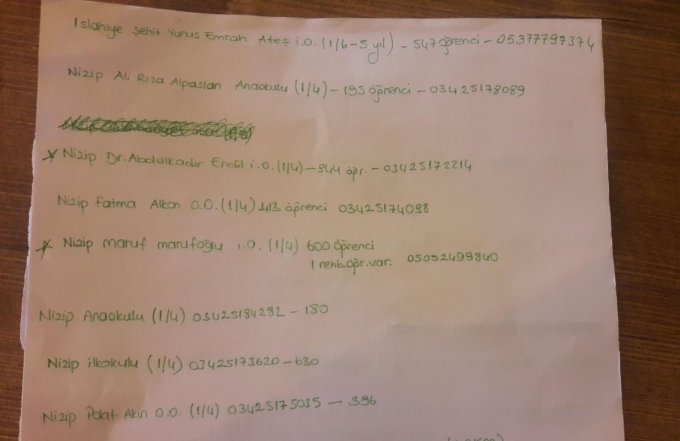 Islahiye Şehit Yunus Emrah Ateş i.O. (1/6-5 yıl) - 547 öğrenci - 05377797374
Nizip Ali Rıza Alpaslan Anaokulu (1/4) - 195 öğrenci - 03425178089
Nizip Dr. Abdulkadir Erdil i.O. (1/4) - 944 öğr. - 03425172214
Nizip Fatma Alkan O.O. (1/4) 413 öğrenci 03425174088
Nizip maruf marufoğlu i.O. (1/4) 600 öğrenci
1 rehb. öğr. var. 05052499840
Nizip Anaokulu (1/4) 03425184282 - 180
Nizip ilkokulu (1/4) 03425173620 - 630
Nizip Polat Akın O.O. (1/4) 03425175035 - 396